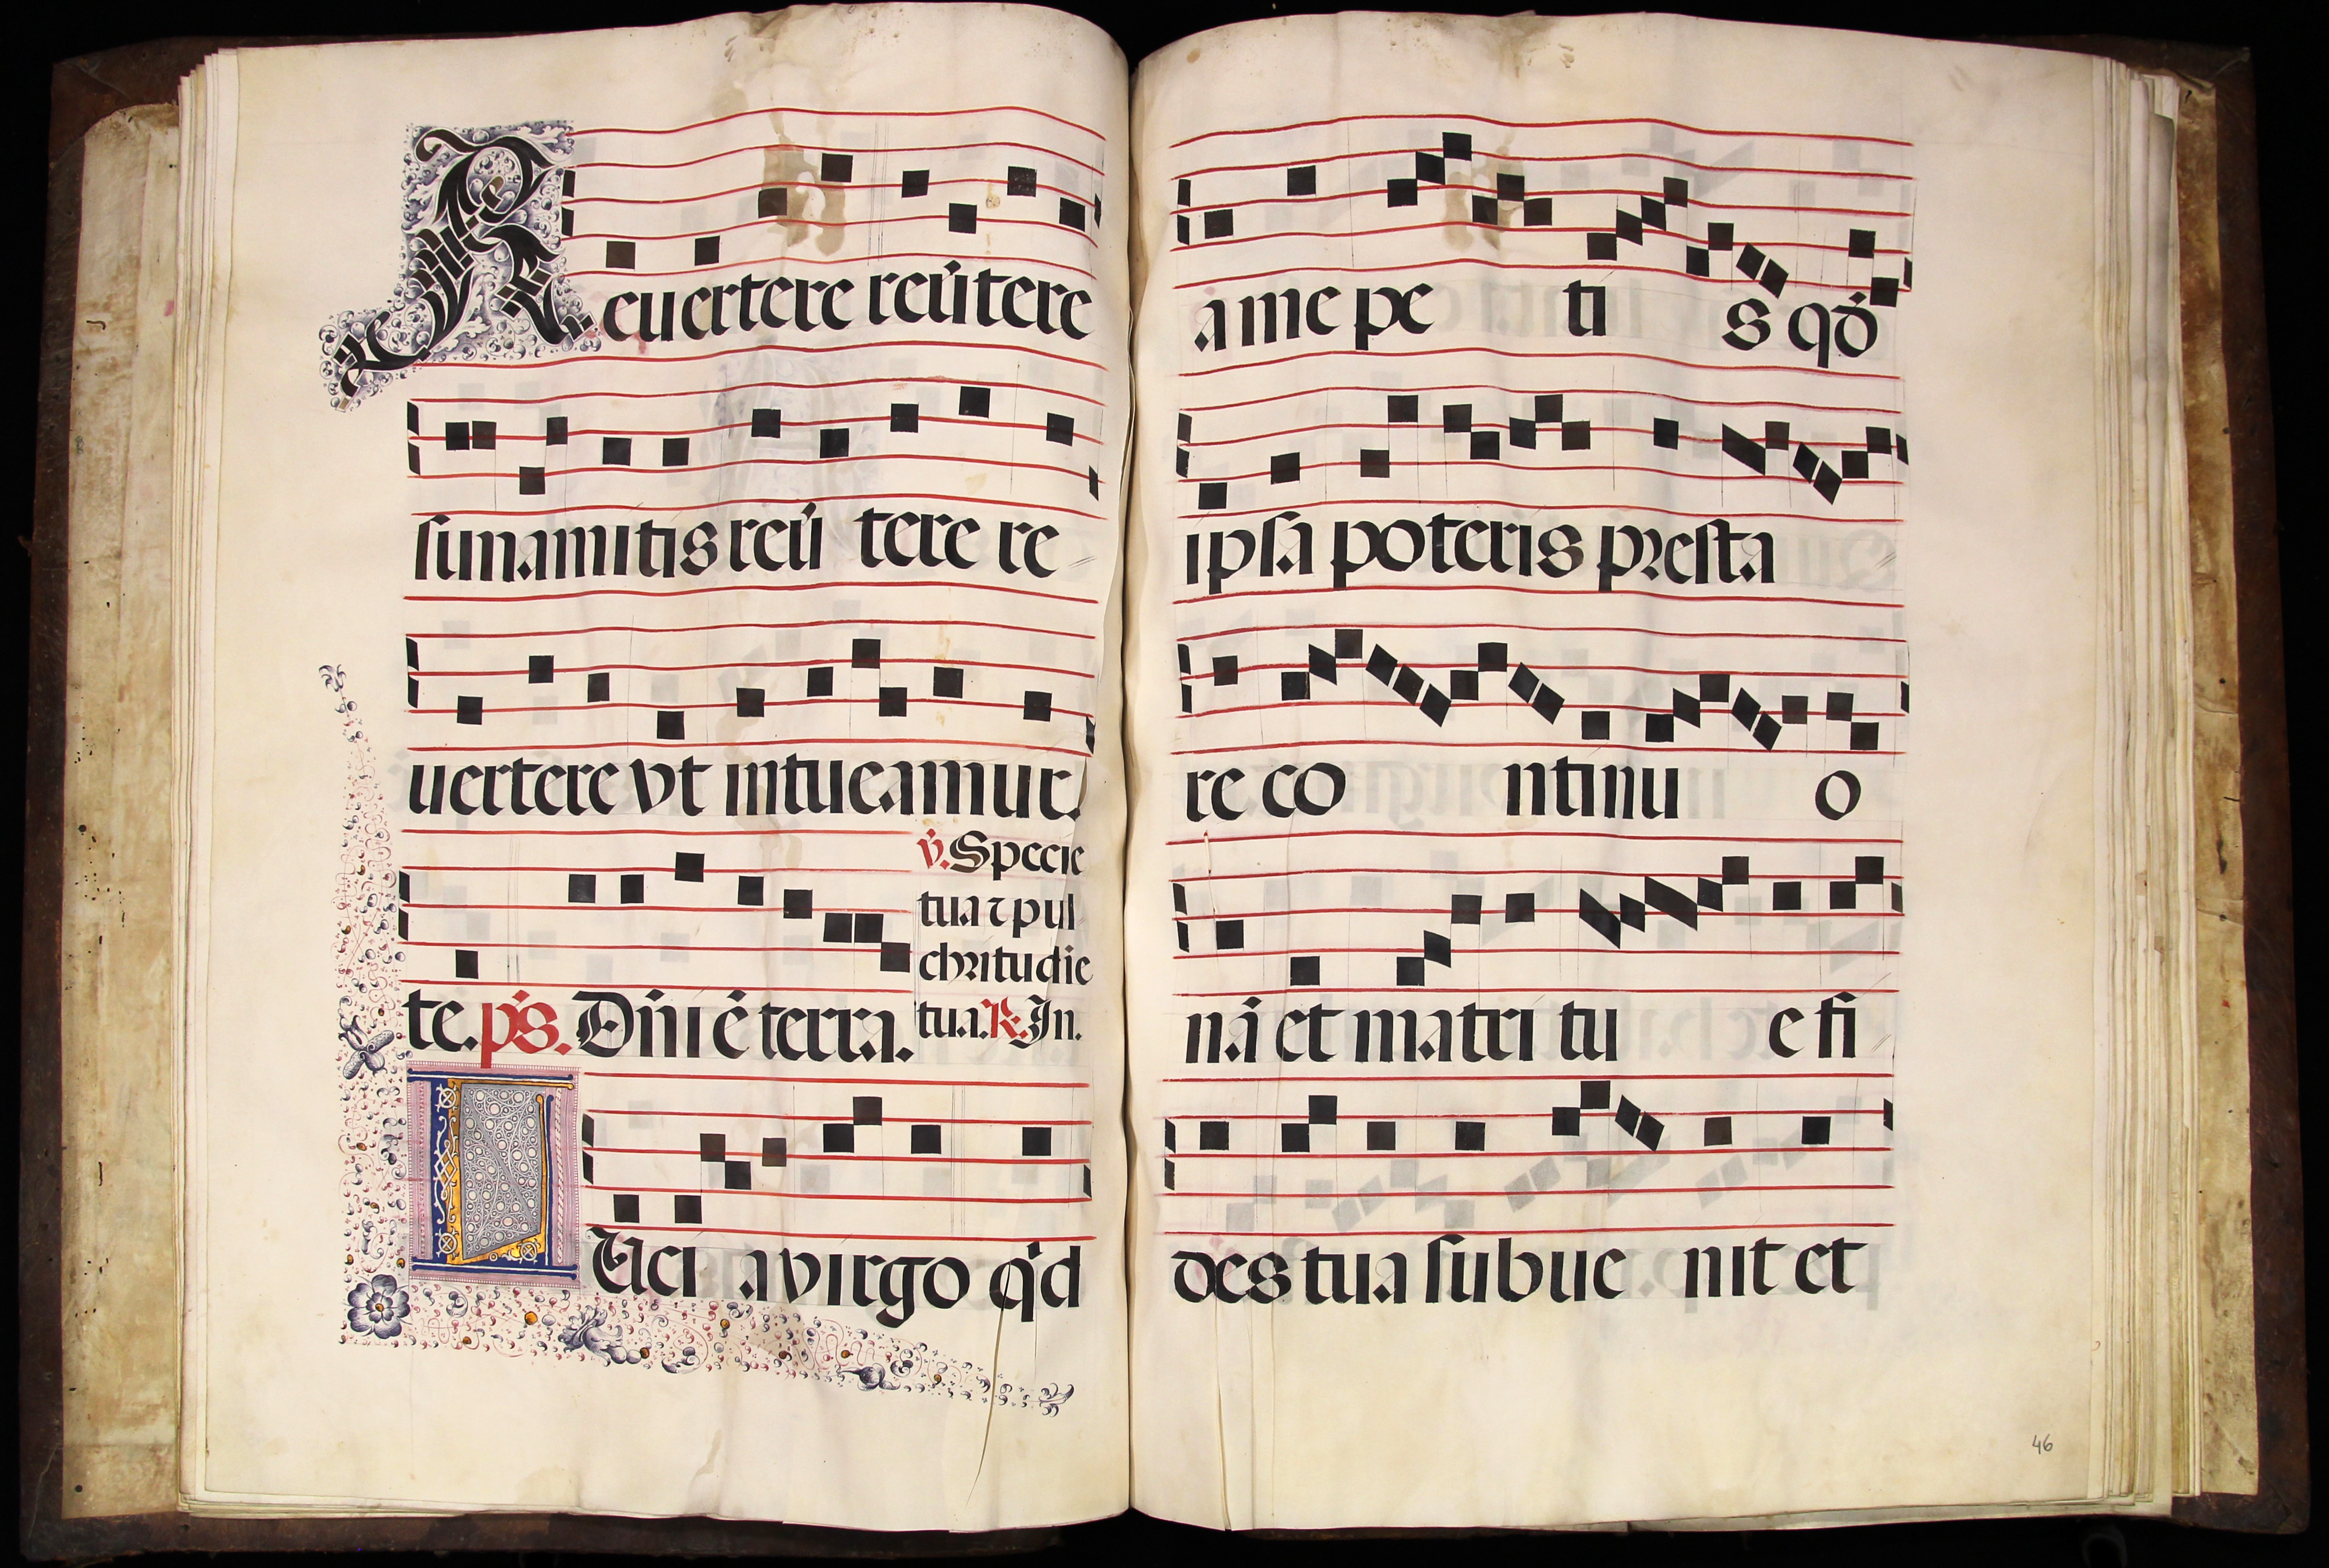 Reuertere reu̇tere
sunamitis reu̇ tere re
uertere vt intueamur
te. ps. Dn̄i ē terra.
v̇. Specie
tua ⁊ pul
chritudīe
tua. R. In.
Luci a virgo qͥd
a me pe ti s qd̓
ipsa poteris presta
re co ntinu o
nā et matri tu e fi
des tua subue nit et
46